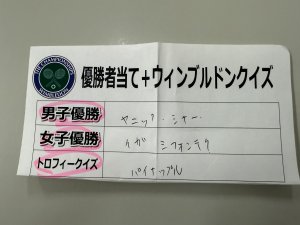 THE CHAMPIONSHIPS
WIMBLEDON
優勝者当て+ウィンブルドンクイズ
男子優勝
ヤニック・シナー
女子優勝
イガ シフォンテク
トロフィークイズ
パイナップル